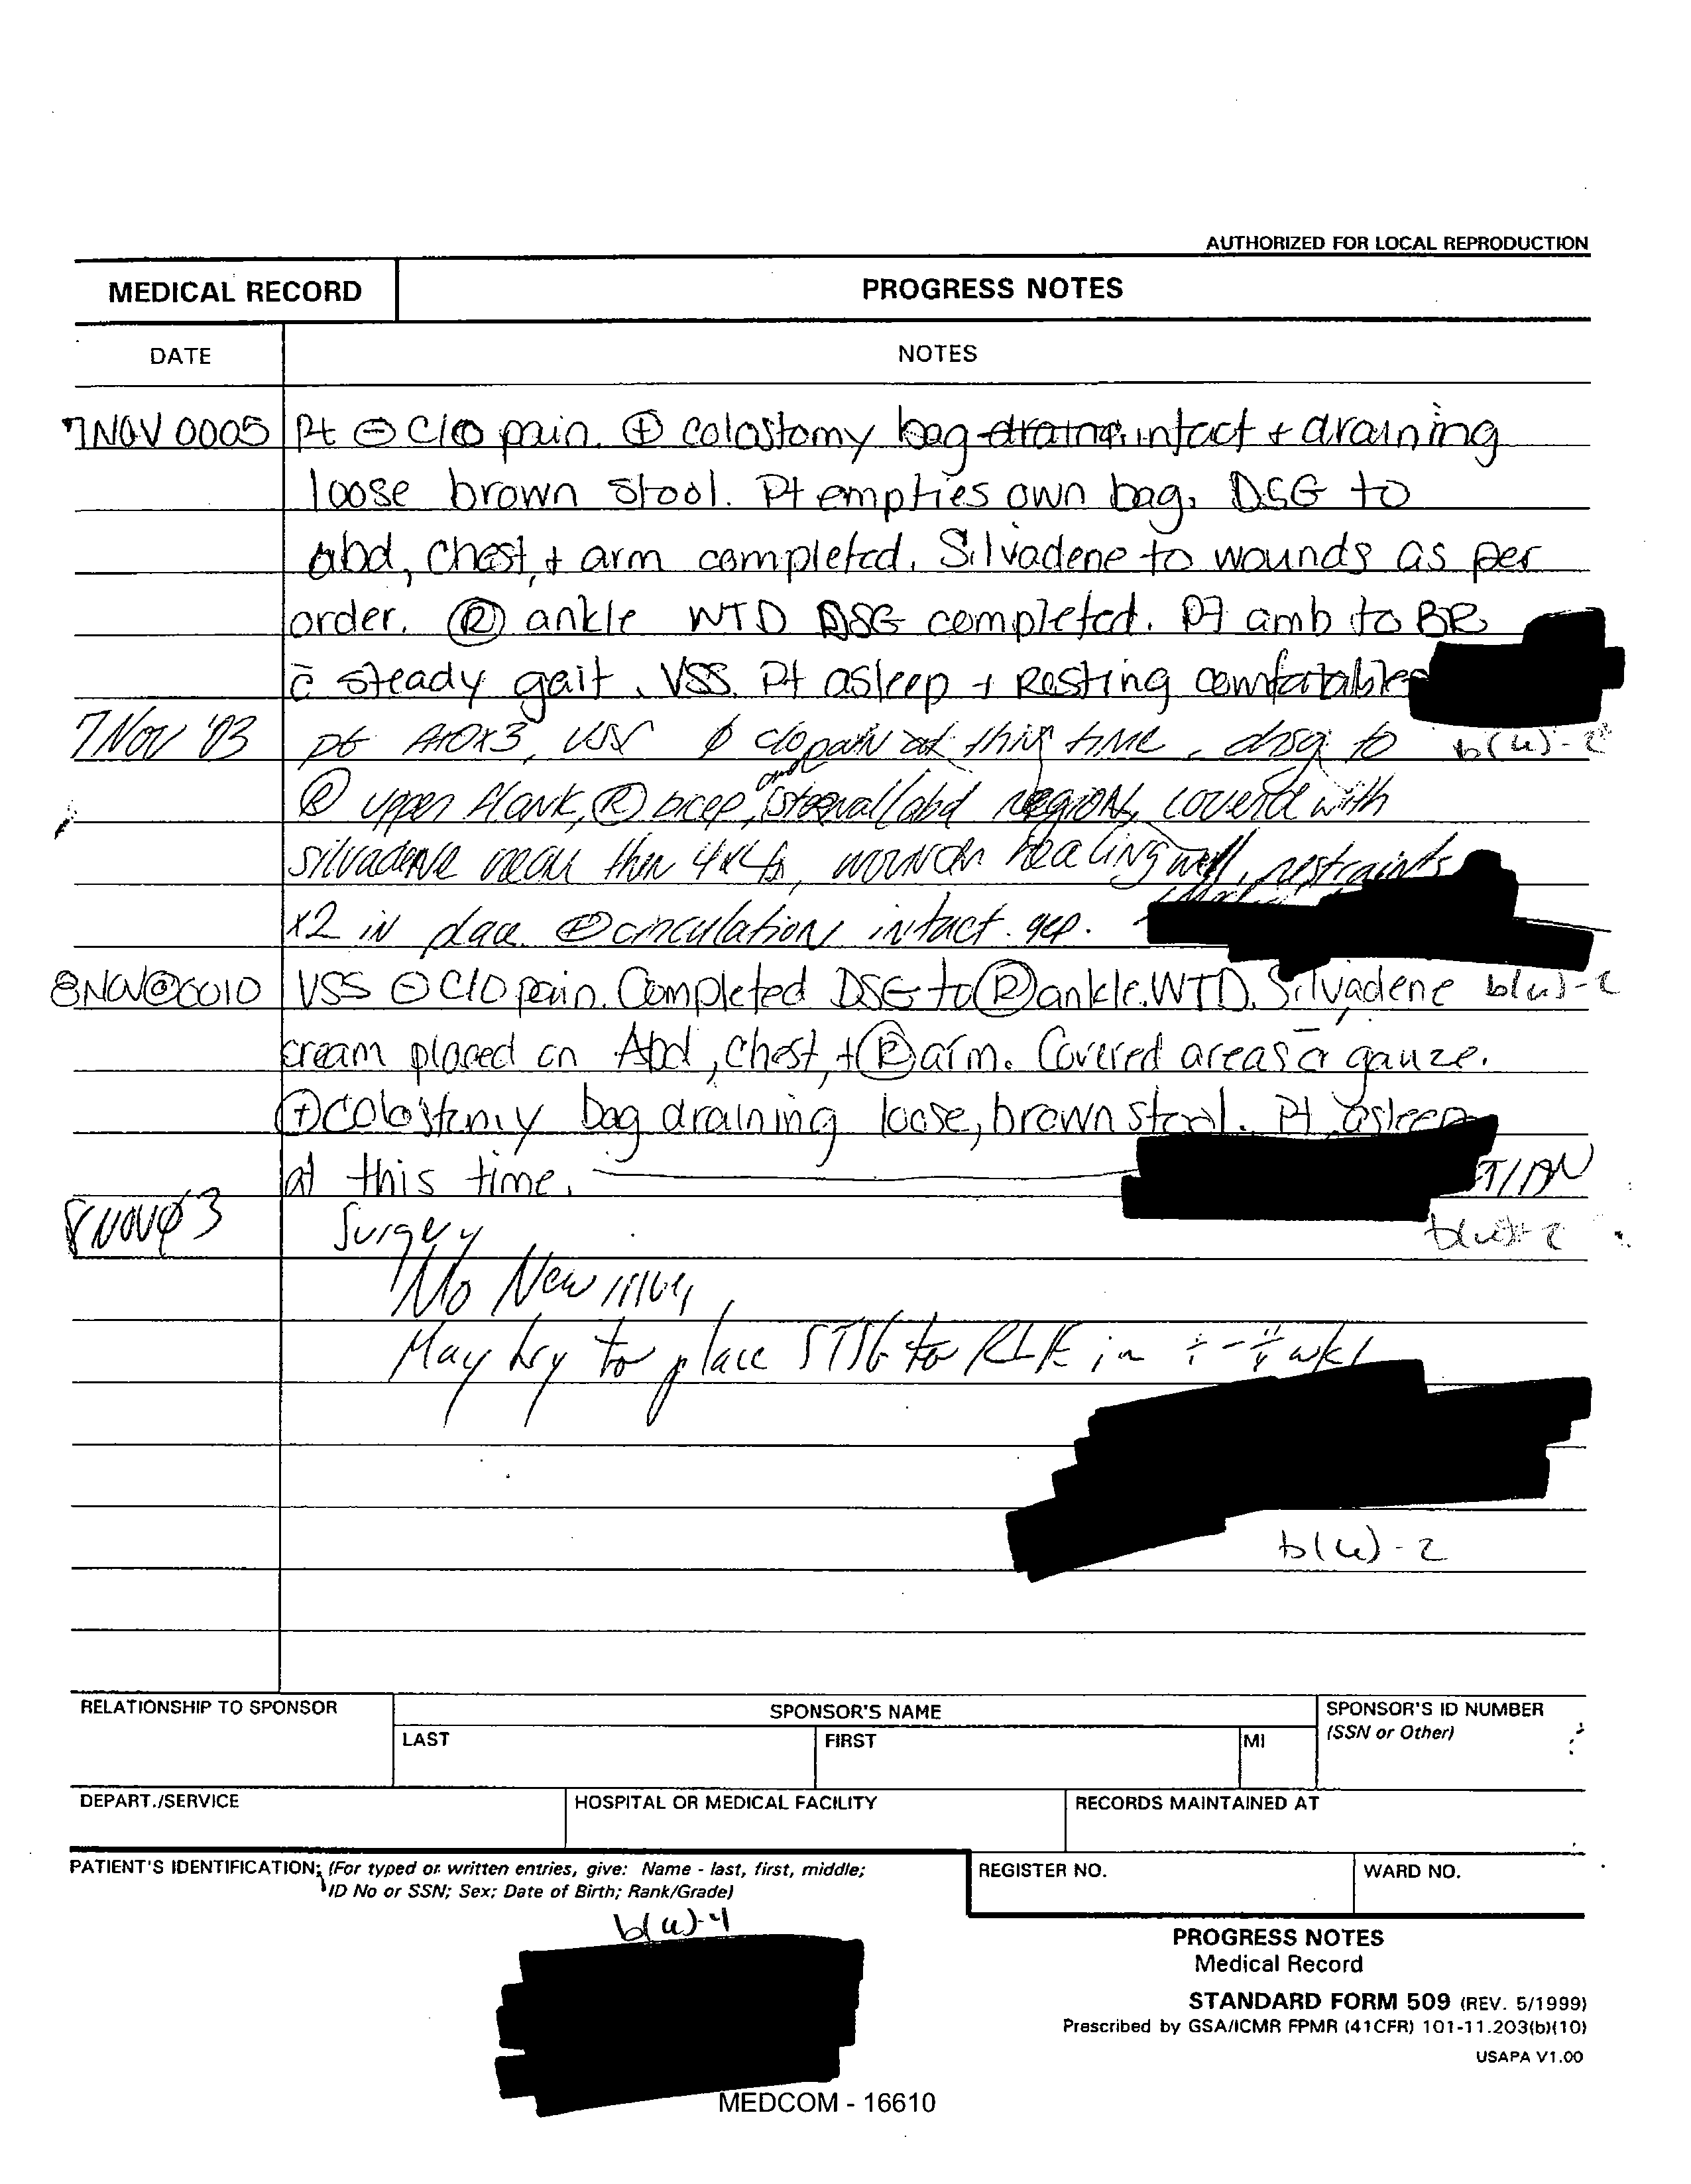 AUTHORIZED FOR LOCAL REPRODUCTION
MEDICAL RECORD
PROGRESS NOTES
DATE
NOTES
7 NOV 0005 Pt ⊖ C/O pain. ⊕ colostomy bag intact + draining
loose brown stool. Pt empties own bag. DSG to
abd, chest, + arm completed. Silvadene to wounds as per
order. Ⓡ ankle WTD DSG completed. Pt amb to BR
c̄ steady gait. VSS. Pt asleep + Resting comfortable
7 Nov '03 pt AOX3, VSS ∅ c/o pain at this time. drsg to
b(6)-2
Ⓡ upper flank, Ⓡ bicep, and /abd region, covered with
silvadene then 4x4s, healing well, restraints
x2 in place ⊕ circulation intact.
8 NOV @ 0010 VSS ⊖ C/O pain. Completed DSG to Ⓡ ankle. WTD. Silvadene b(6)-2
cream placed on Abd, chest, + Ⓡ arm. Covered areas c̄ gauze.
⊕ Colostomy bag draining loose, brown stool. Pt asleep
at this time.
8 NOV 03 Surgery
b(6)-2
No New issues
May try to place STSG to RLE in wks
b(6)-2
RELATIONSHIP TO SPONSOR
SPONSOR'S NAME
SPONSOR'S ID NUMBER
(SSN or Other)
LAST
FIRST
MI
DEPART./SERVICE
HOSPITAL OR MEDICAL FACILITY
RECORDS MAINTAINED AT
PATIENT'S IDENTIFICATION: (For typed or written entries, give: Name - last, first, middle;
ID No or SSN; Sex; Date of Birth; Rank/Grade)
REGISTER NO.
WARD NO.
b(6)-4
PROGRESS NOTES
Medical Record
STANDARD FORM 509 (REV. 5/1999)
Prescribed by GSA/ICMR FPMR (41CFR) 101-11.203(b)(10)
USAPA V1.00
MEDCOM - 16610